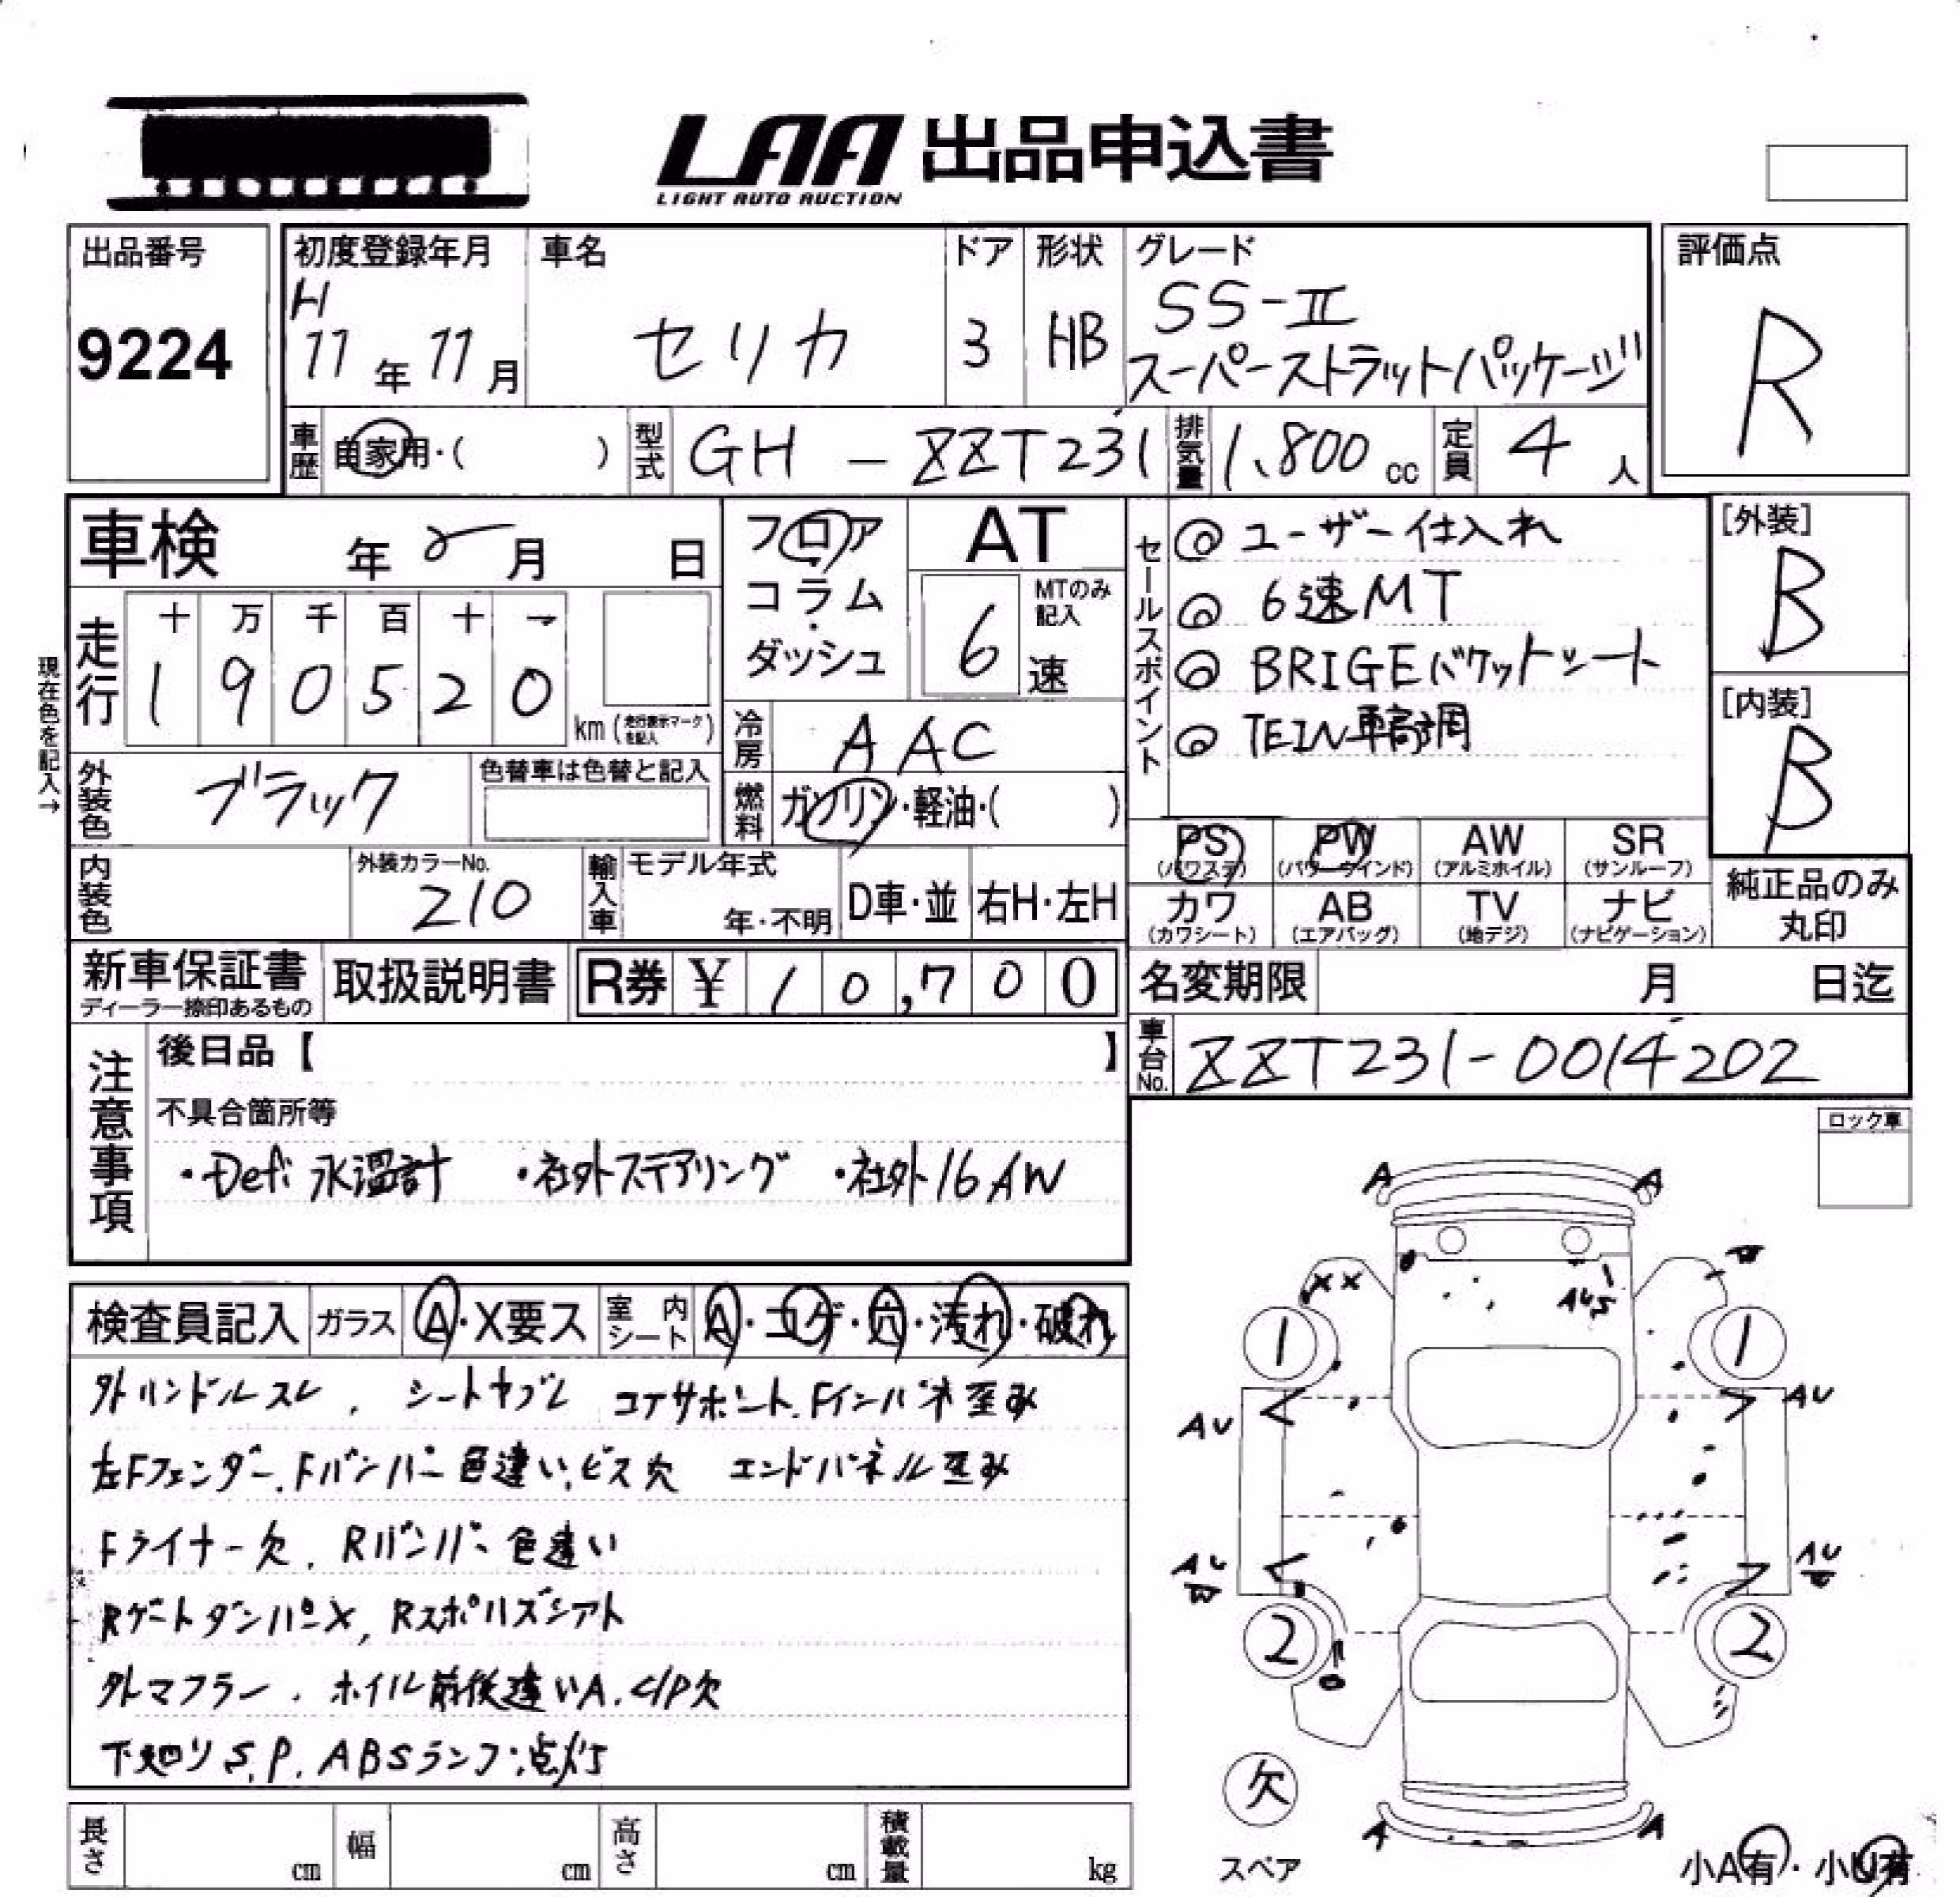 LAA 出品申込書
LIGHT AUTO AUCTION
出品番号
9224
初度登録年月
H
11年 11月
車名
セリカ
ドア
3
形状
HB
グレード
SS-II
スーパーストラットパッケージ
評価点
R
車歴
自家用・( )
型式
GH - ZZT231
排気量
1,800 cc
定員
4 人
車検 年 月 日
走行
十 万 千 百 十 一
1 9 0 5 2 0
km (走行表示マークを記入)
現在色を記入→
フロア・コラム・ダッシュ
AT
MTのみ記入
6 速
冷房
AAC
燃料
ガソリン・軽油・( )
外装色
ブラック
色替車は色替と記入
内装色
外装カラーNo.
210
輸入車
モデル年式
年・不明
D車・並
右H・左H
セールスポイント
◎ ユーザー仕入れ
◎ 6速MT
◎ BRIGEバケットシート
◎ TEIN車高調
[外装]
B
[内装]
B
PS
(パワステ)
PW
(パワーウインド)
AW
(アルミホイル)
SR
(サンルーフ)
カワ
(カワシート)
AB
(エアバッグ)
TV
(地デジ)
ナビ
(ナビゲーション)
純正品のみ
丸印
新車保証書
ディーラー捺印あるもの
取扱説明書
R券 ¥ 10,700
名変期限 月 日迄
車台No.
ZZT231-0014202
注意事項
後日品【 】
不具合箇所等
・Defi 水温計 ・社外ステアリング ・社外16AW
ロック車
検査員記入
ガラス
A・X要ス
室内シート
A・コゲ・穴・汚れ・破れ
外ハンドルスレ、シートヤブレ コアサポート、Fインパネ歪み
左Fフェンダー、Fバンパー色違い、ビス欠 エンドパネル歪み
Fライナー欠、Rバンパー色違い
RゲートダンパーX、Rスポハズシアト
外マフラー、ホイル前後違いA、C/P欠
下廻りS,P、ABSランプ点灯
長さ cm
幅 cm
高さ cm
積載量 kg
A A
XX
AUS
1 1
AU AU
AU AU
W
2 2
欠
スペア
A A
小A有・小U有